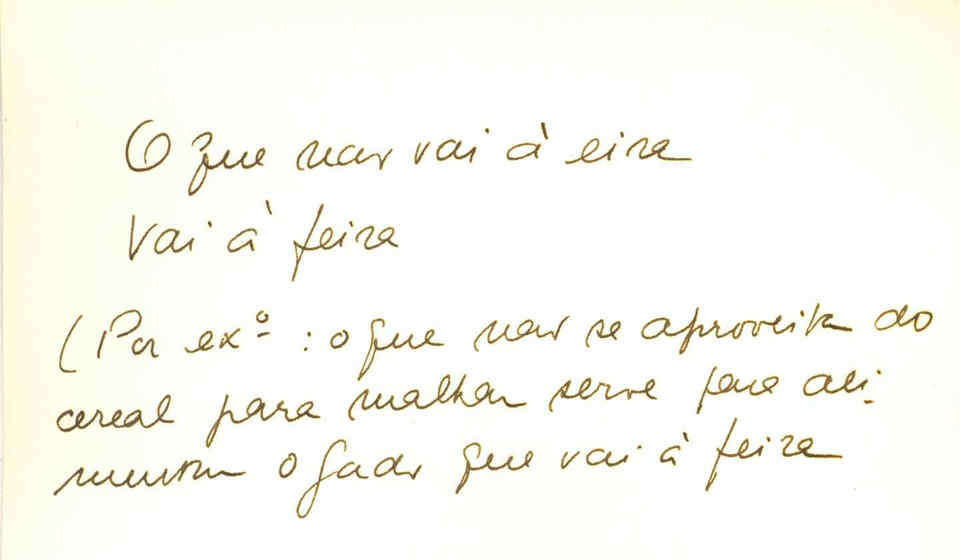 O que não vai à eira
Vai à feira
(Por exº : o que não se aproveita do
cereal para malhar serve para ali-
mentar o gado que vai à feira